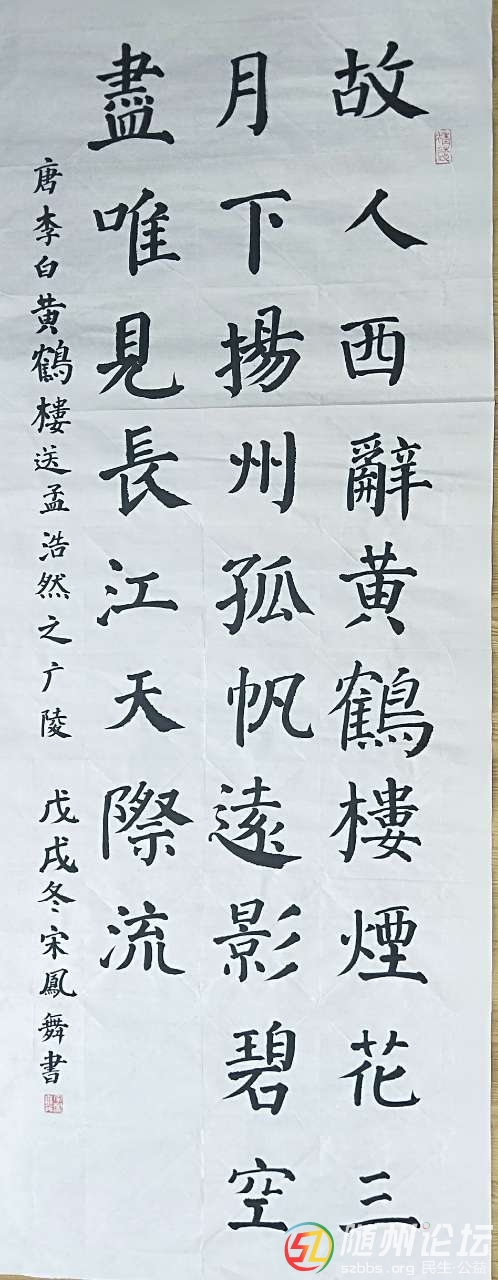 故人西辭黄鶴樓煙花三
月下揚州孤帆遠影碧空
盡唯見長江天際流
唐李白黄鶴樓送孟浩然之广陵 戊戌冬宋鳳舞書
随州论坛
szbbs.org 民生·公益